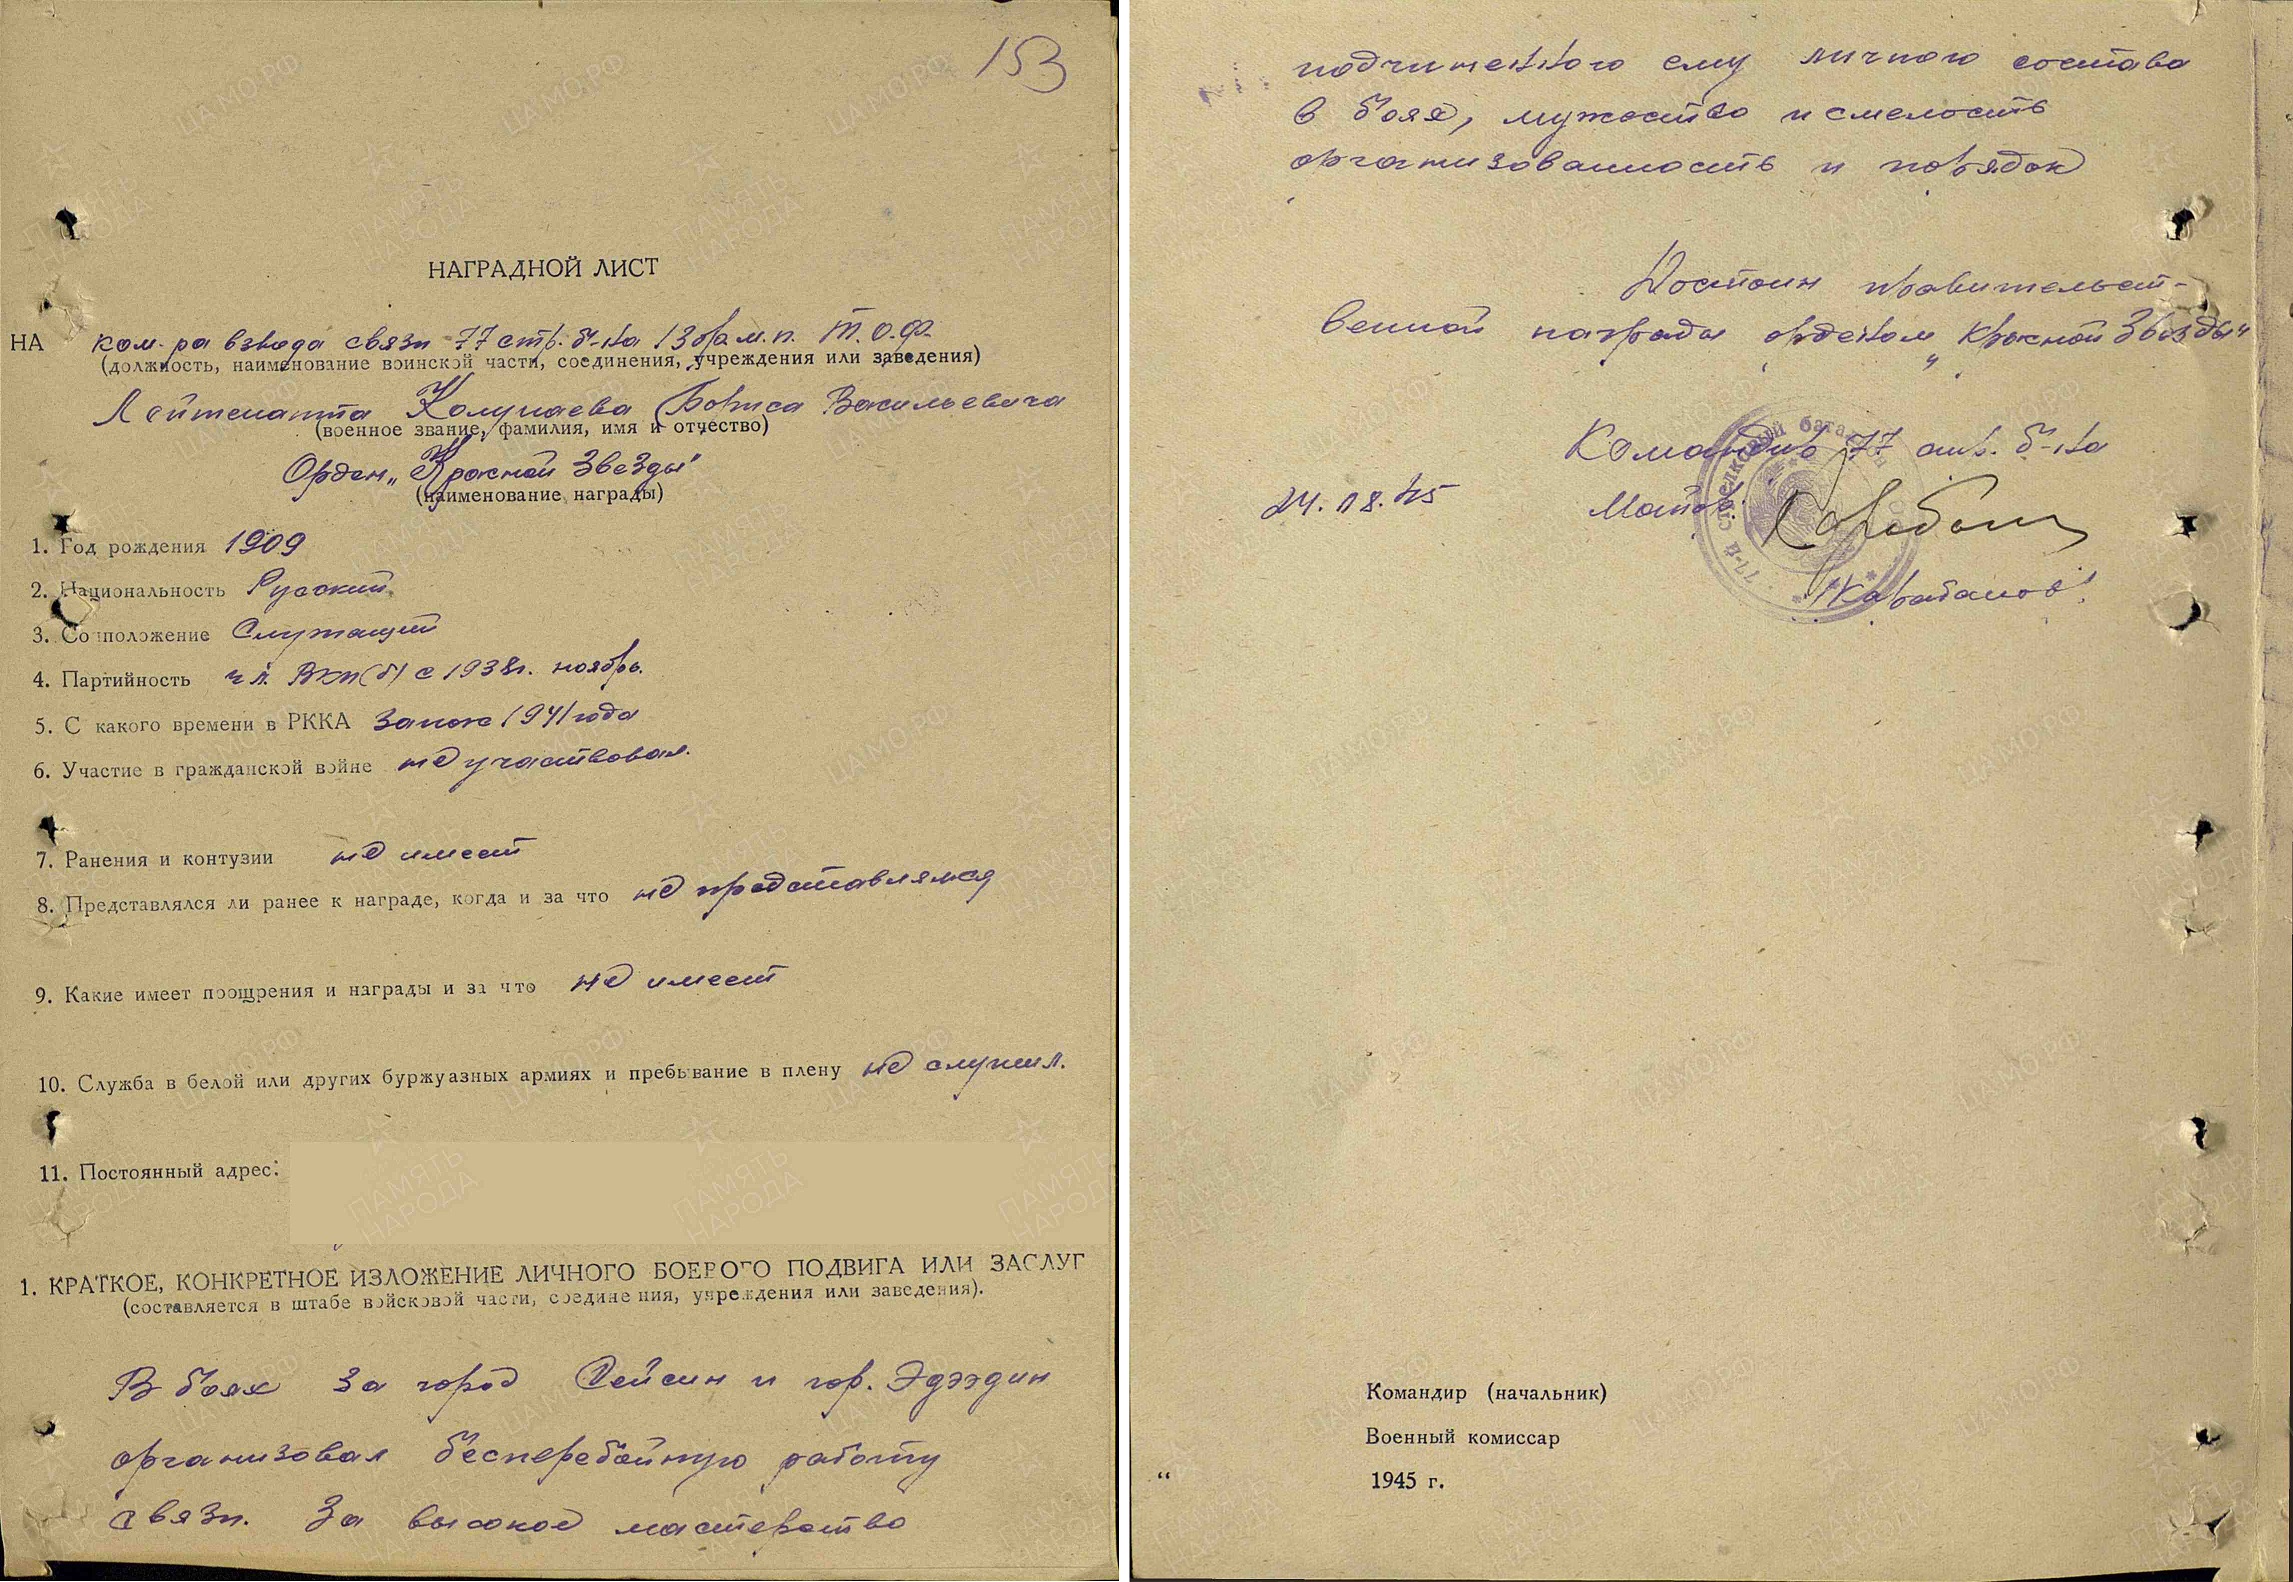 153
НАГРАДНОЙ ЛИСТ
НА ком-ра взвода связи 77 стр. б-на 13 бр. м.п. Т.О.Ф.
(должность, наименование воинской части, соединения, учреждения или заведения)
Лейтенанта Колупаева Бориса Васильевича
(военное звание, фамилия, имя и отчество)
Орден „Красной Звезды"
(наименование награды)
1. Год рождения 1909
2. Национальность Русский
3. Соцположение Служащий
4. Партийность чл. ВКП(б) с 1938г. ноябрь.
5. С какого времени в РККА запас 1941 года
6. Участие в гражданской войне не участвовал.
7. Ранения и контузии не имеет
8. Представлялся ли ранее к награде, когда и за что не представлялся
9. Какие имеет поощрения и награды и за что не имеет
10. Служба в белой или других буржуазных армиях и пребывание в плену не служил.
11. Постоянный адрес:
1. КРАТКОЕ, КОНКРЕТНОЕ ИЗЛОЖЕНИЕ ЛИЧНОГО БОЕВОГО ПОДВИГА ИЛИ ЗАСЛУГ
(составляется в штабе войсковой части, соединения, учреждения или заведения).
В боях за город Сейсин и гор. Эдээдин
организовал бесперебойную работу
связи. За высокое мастерство
подчиненного ему личного состава
в боях, мужество и смелость
организованность и порядок
Достоин правительст-
венной награды орденом „Красной Звезды"
Командир 77 стр. б-на
24.08.45 Майор
77-й стрелковый батальон
/Карабанов/
Командир (начальник)
Военный комиссар
“ 1945 г.
ЦАМО.РФ
ПАМЯТЬ НАРОДА